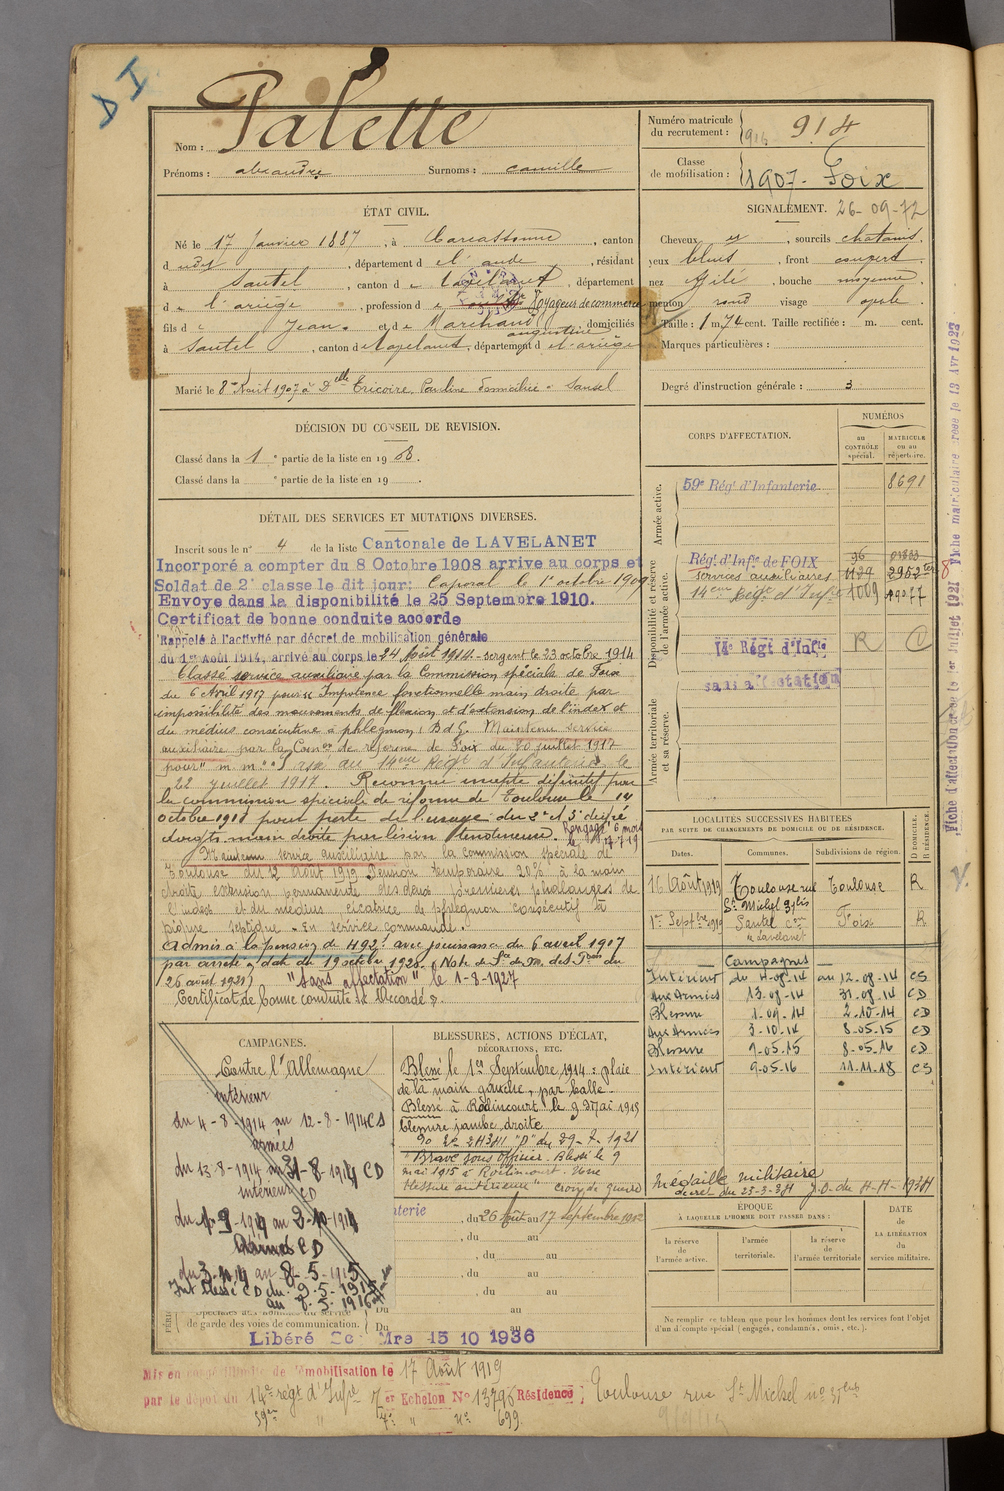 D I
Palette
Nom :
Prénoms : alexandre Surnoms : camille
Numéro matricule
du recrutement : 914
916
Classe
de mobilisation : 1907 - Foix
ÉTAT CIVIL.
Né le 17 Janvier 1887, à Carcassonne, canton
d udit, département d e l'aude, résidant
à Sautel, canton d e Lavelanet, département
d e l'ariège, profession d e Voyageur de commerce
fils d e Jean. et d e Marchand augustine domiciliés
à Sautel, canton d e Lavelanet, département d e l'ariège
Marié le 8 Aout 1907 à Delle Tricoire, Pauline domiciliée à Sautel
SIGNALEMENT. 26-09-72
Cheveux et, sourcils chatains.
yeux bleus, front couvert.
nez effilé, bouche moyenne.
menton rond visage ovale.
Taille : 1 m 74 cent. Taille rectifiée : m. cent.
Marques particulières :
Degré d'instruction générale : 3
DÉCISION DU CONSEIL DE REVISION.
Classé dans la 1e partie de la liste en 1908.
Classé dans la e partie de la liste en 19 .
DÉTAIL DES SERVICES ET MUTATIONS DIVERSES.
Inscrit sous le n° 4 de la liste Cantonale de LAVELANET
Incorporé a compter du 8 Octobre 1908 arrive au corps et
Soldat de 2e classe le dit jour; Caporal le 1er octobre 1909
Envoye dans la disponibilité le 25 Septembre 1910.
Certificat de bonne conduite accorde
Rappelé à l'activité par décret de mobilisation générale
du 1er Août 1914, arrivé au corps le 24 Août 1914 - sergent le 23 octbre 1914
Classé service auxiliaire par la Commission spéciale de Foix
du 6 Avril 1917 pour « Impotence fonctionnelle main droite par
impossibilité des mouvements de flexion et d'extension de l'index et
du médius consécutive à phlegmon, B.d.G. Maintenu service
auxiliaire par la Comon de réforme de Foix du 20 juillet 1917
pour "m. m" Passé au 14eme Regt d'Infanterie le
22 juillet 1917. Reconnu inapte définitif par
la commission spéciale de réforme de Toulouse le 14
octobre 1918 pour perte de l'usage du 2e et 3e
doigts main droite par lésion tendineuse. Rengagé 6 mois
le 17-7-19
Maintenu service auxiliaire par la Commission spéciale de
Toulouse du 12 Août 1919 Pension temporaire 20% à la main
droite extension permanente des deux premières phalanges de
l'index et du médius cicatrice de phlegmon consécutif à
piqûre septique - En service commandé.
Admis à la pension de 492f avec jouissance du 6 avril 1917
par arrêté à date du 19 octobre 1920 (Note de
26 avril 1921) "Sans affectation" le 1-8-1927
Certificat de bonne conduite « Accordé ».
CORPS D'AFFECTATION.
NUMÉROS
au CONTRÔLE spécial.
MATRICULE ou au répertoire.
Armée active.
59e Rég. d'Infanterie 8691
Disponibilité et réserve de l'armée active.
Régt d'Infie de FOIX 96
services auxiliaires 1129 2952ter
14eme Régt d'Infie 1009
14e Régt d'Infie R
sans affectation
Armée territoriale et sa réserve.
Fiche matriculaire
LOCALITÉS SUCCESSIVES HABITÉES
PAR SUITE DE CHANGEMENTS DE DOMICILE OU DE RÉSIDENCE.
Dates. Communes. Subdivisions de région. D DOMICILE. R RÉSIDENCE.
16 Août 1919 Toulouse rue Toulouse R
St Michel 37bis
1er Septbre 1919 Sautel Con Foix R
Lavelanet
Campagnes
Intérieur du 4-08-14 au 12-08-14 CS
aux Armées 13-08-14 31-08-14 CD
Blessure 1-09-14 2-10-14 CD
Aux Armées 3-10-14 8-05-15 CD
Blessure 9-05-15 8-05-16 CD
Intérieur 9-05-16 11-11-18 CS
Médaille militaire
décret du 23-3-34 J.O. du 4-4-1934
CAMPAGNES.
Contre l'Allemagne
intérieur
du 4-8-1914 au 12-8-1914 CS
armées
du 13-8-1914 au 31-8-1914 CD
intérieur CD
du 1-9-1914 au 2-10-1914
Armées CD
du 3-10-14 au 8-5-1915
Int blessé CD du 9-5-1915
au 8-5-1916
BLESSURES, ACTIONS D'ÉCLAT,
DÉCORATIONS, ETC.
Blessé le 1er Septembre 1914 : plaie
de la main gauche, par balle -
Blessé à Roclincourt le 9 Mai 1915
blessure jambe droite
"D" du 29-7-1921
"Brave sous officier. Blessé le 9
mai 1915 à Roclincourt. Une
blessure antérieure" croix de guerre
nterie, du 26 Août au 17 septembre 1912
, du au
, du au
, du au
, du au
Du au
Spéciales aux hommes du service
de garde des voies de communication. Du au
Libéré 15 10 1936
ÉPOQUE
À LAQUELLE L'HOMME DOIT PASSER DANS :
la réserve de l'armée active.
l'armée territoriale.
la réserve de l'armée territoriale
DATE
de
LA LIBÉRATION
du
service militaire.
Ne remplir ce tableau que pour les hommes dont les services font l'objet
d'un décompte spécial (engagés, condamnés, omis, etc.).
Mis en congé illimité de démobilisation le 17 Août 1919
par le dépôt du 14e regt d'Infie 7er Echelon N° 13796 Résidence ; Toulouse rue St Michel no 37bis
59me " 7e " no 699.